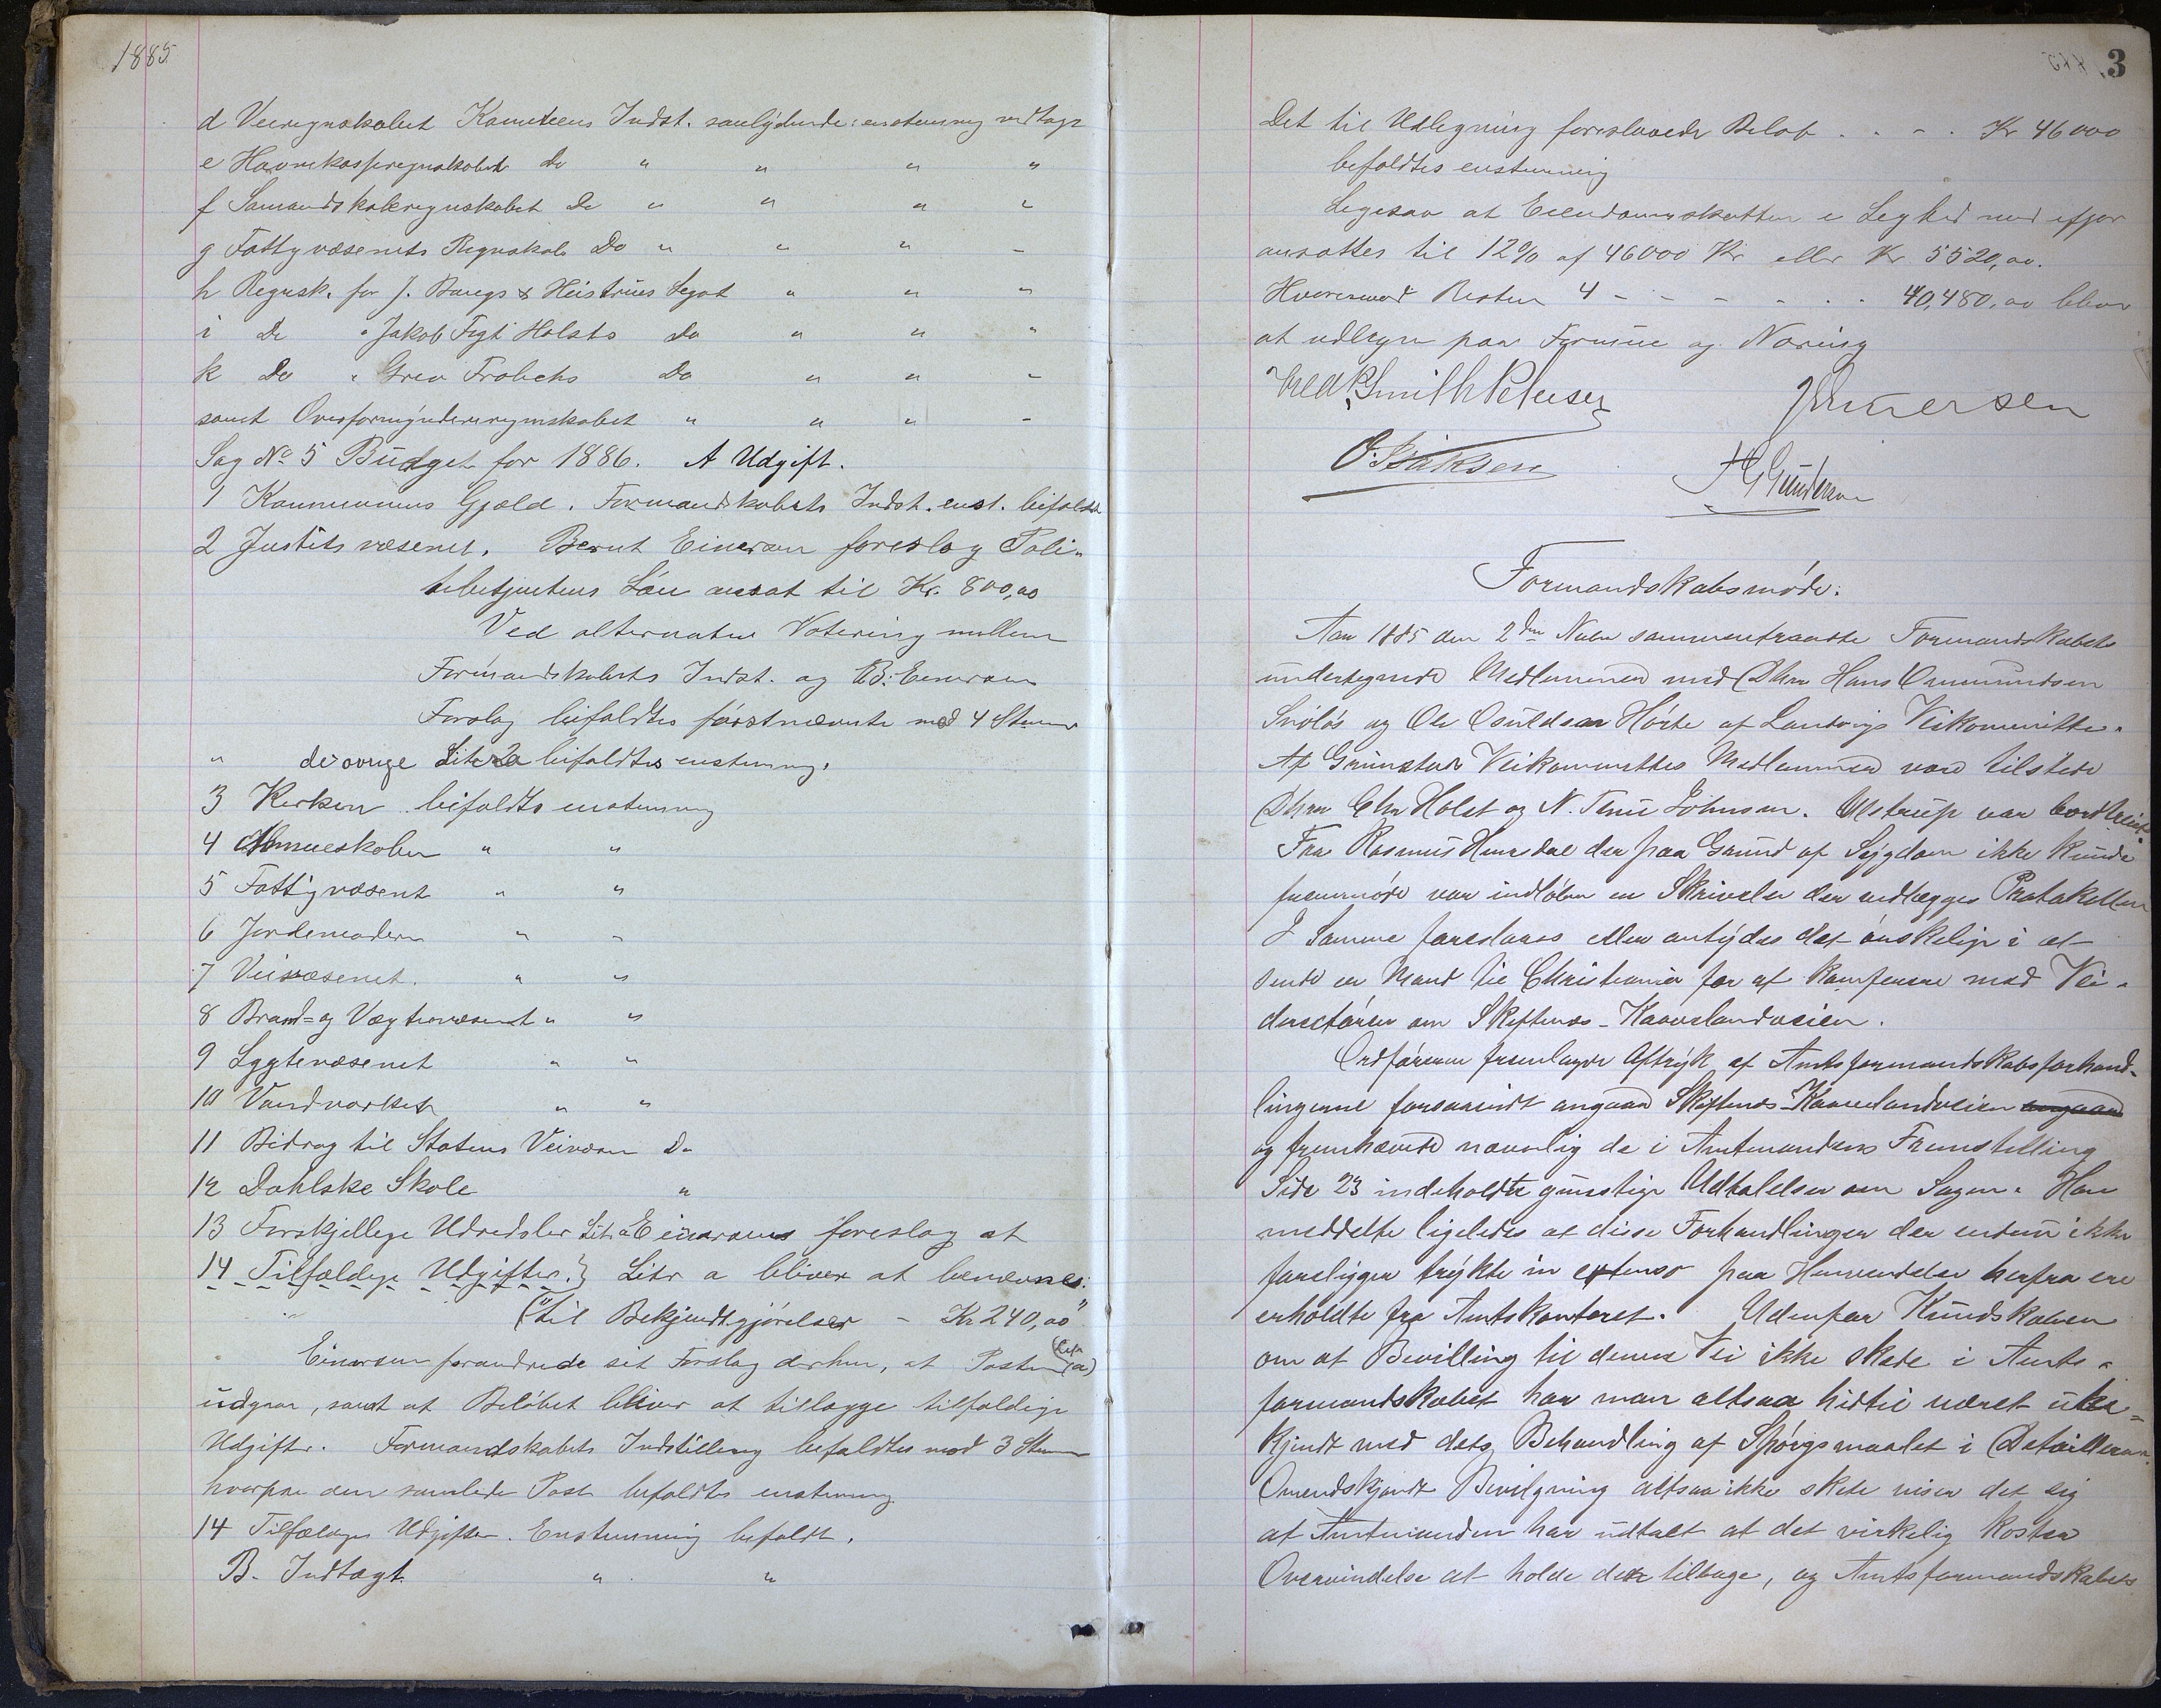 1885.
d Veiregnskabet Komiteens Indst. samlydende: enstemmig vedtages
e Havnekasseregnskabet Do " " " "
f Samandskoleregnskabet Do " " " "
g Fattigvæsenets Regnskab Do " " " "
h Regnsk. for J. Bangs & Heistrües Legat " " "
i Do " Jakob Fegt Holsts Do " " "
k Do " Grev Frolichs Do " " "
samt Overformynderiregnskabet " " " "
Sag No 5 Budget for 1886. A Udgift.
1 Kommunens Gjæld. Formandskabets Indst. enst. bifaldt
2 Justitsvæsenet. Bernt Einersen foreslog Poli-
tibetjentens Løn ansat til Kr. 800,00
Ved alternativ Votering mellem
Formandskabets Indst. og B. Einersens
Forslag bifaldtes førstnævnte med 4 Stemmer
" de øvrige Litra bifaldtes enstemmig.
3 Kirken bifaldtes enstemmig
4 Almueskolen " "
5 Fattigvæsenet " "
6 Jordemoderen " "
7 Veivæsenet. " "
8 Brand- og Vægtervæsenet " "
9 Lygtevæsenet " "
10 Vandværket " "
11 Bidrag til Statens Veivæsen Do
12 Dahlske Skole "
13 Forskjellige Udredsler Litr a Einersens foreslog at
14 Tilfældige Udgifter.} Litr a bliver at benævnes:
("til Bekjendtgjørelser - Kr 240,00"
Einersen forandrede sit Forslag derhen, at Posten (Litr a)
udgaar, samt at Beløbet bliver at tillægge tilfældige
Udgifter. Formandskabets Indstilling bifaldtes med 3 Stemmer
hvorpaa den samlede Post bifaldtes enstemmig
14 Tilfældige Udgifter. Enstemmig bifaldt.
B. Indtægt. " "
3
Det til Udlegning foreslaaede Beløb . . - . Kr 46000
bifaldtes enstemmig
Ligesaa at Eiendomsskatten i Lighed med ifjor
ansættes til 12% af 46000 Kr eller Kr 5520,00.
Hvorimod Resten 4 - - - - . . 40,480,00 bliver
at udligne paa Formue og Næring
Fredk. Smith Petersen
J Einersen
O. Isaksen
H G Gundersen
Formandskabsmøde.
Aar 1885 den 2den Novbr sammentraadte Formandskabets
undertegnede Medlemmer med Dhrr Hans Ommundsen
Snøløs og Ole Osuldsen Hørte af Landvigs Veikommitte.
Af Grimstads Veikommittes Medlemmer vare tilstede
Dhrr Chr Holst og N. Tenü Johnsen. Ulstrup var bortreist
Fra Rasmus Homdal der paa Grund af Sygdom ikke kunde
fremmøde var indløben en Skrivelse der vedlægges Protokollen
I Samme foreslaaes eller antydes det ønskelige i at
sende en Mand til Christiania for at konferere med Vei-
directøren om Skiftenes-Kaavelandveien.
Ordføreren fremlagde Aftryk af Amtsformandskabsforhand-
lingerne forsaavidt angaar Skiftenes-Kaavelandveien angaar
og fremhævede navnlig de i Amtmandens Fremstilling
Side 23 indeholdte gunstige Udtalelser om Sagen. Han
meddelte ligeledes at disse Forhandlinger der endnu ikke
foreligger trykte in extenso paa Henvendelse herfra ere
erholdte fra Amtskontoret. Udenfor Kundskaben
om at Bevilling til denne Vei ikke skede i Amts-
formandskabet har man altsaa hidtil været ube-
kjendt med dets Behandling af Spørgsmaalet i Detaillerne.
Omendskjøndt Bevilgning altsaa ikke skete viser det sig
at Amtmanden har udtalt at det virkelig koster
Overvindelse at holde den tilbage, og Amtsformandskabets